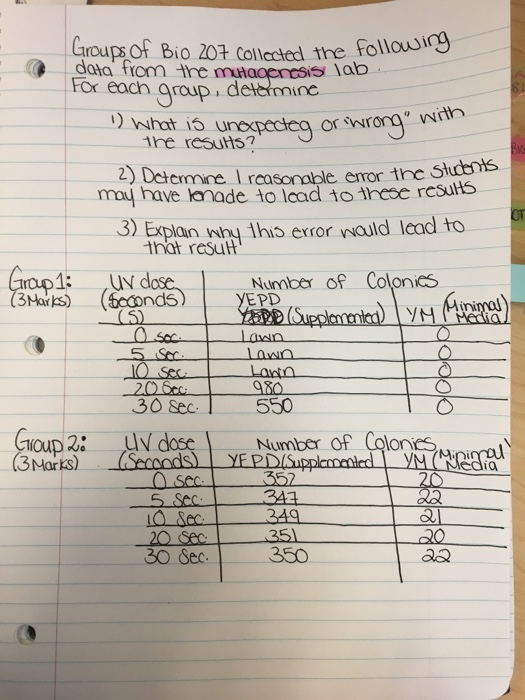 Groups Of Bio 207 Collected the following
data from the mutagenesis lab.
For each group, determine
1) what is unexpecteg or "wrong" with
the results?
2) Determine 1 reasonable error the students
may have made to lead to these results
3) Explain why this error would lead to
that result
Group 1: UV dose Number of Colonies
(3 Marks) (Seconds) YEPD
(S) (Supplemented) YM (Minimal Media)
0 sec. Lawn 0
5 sec. Lawn 0
10 sec. Lawn 0
20 sec. 980 0
30 sec. 550 0
Group 2: UV dose Number of Colonies
(3 Marks) (Seconds) YEPD (Supplemented YM (Minimal Media
0 sec. 352 20
5 sec. 347 22
10 sec. 349 21
20 sec. 351 20
30 sec. 350 22